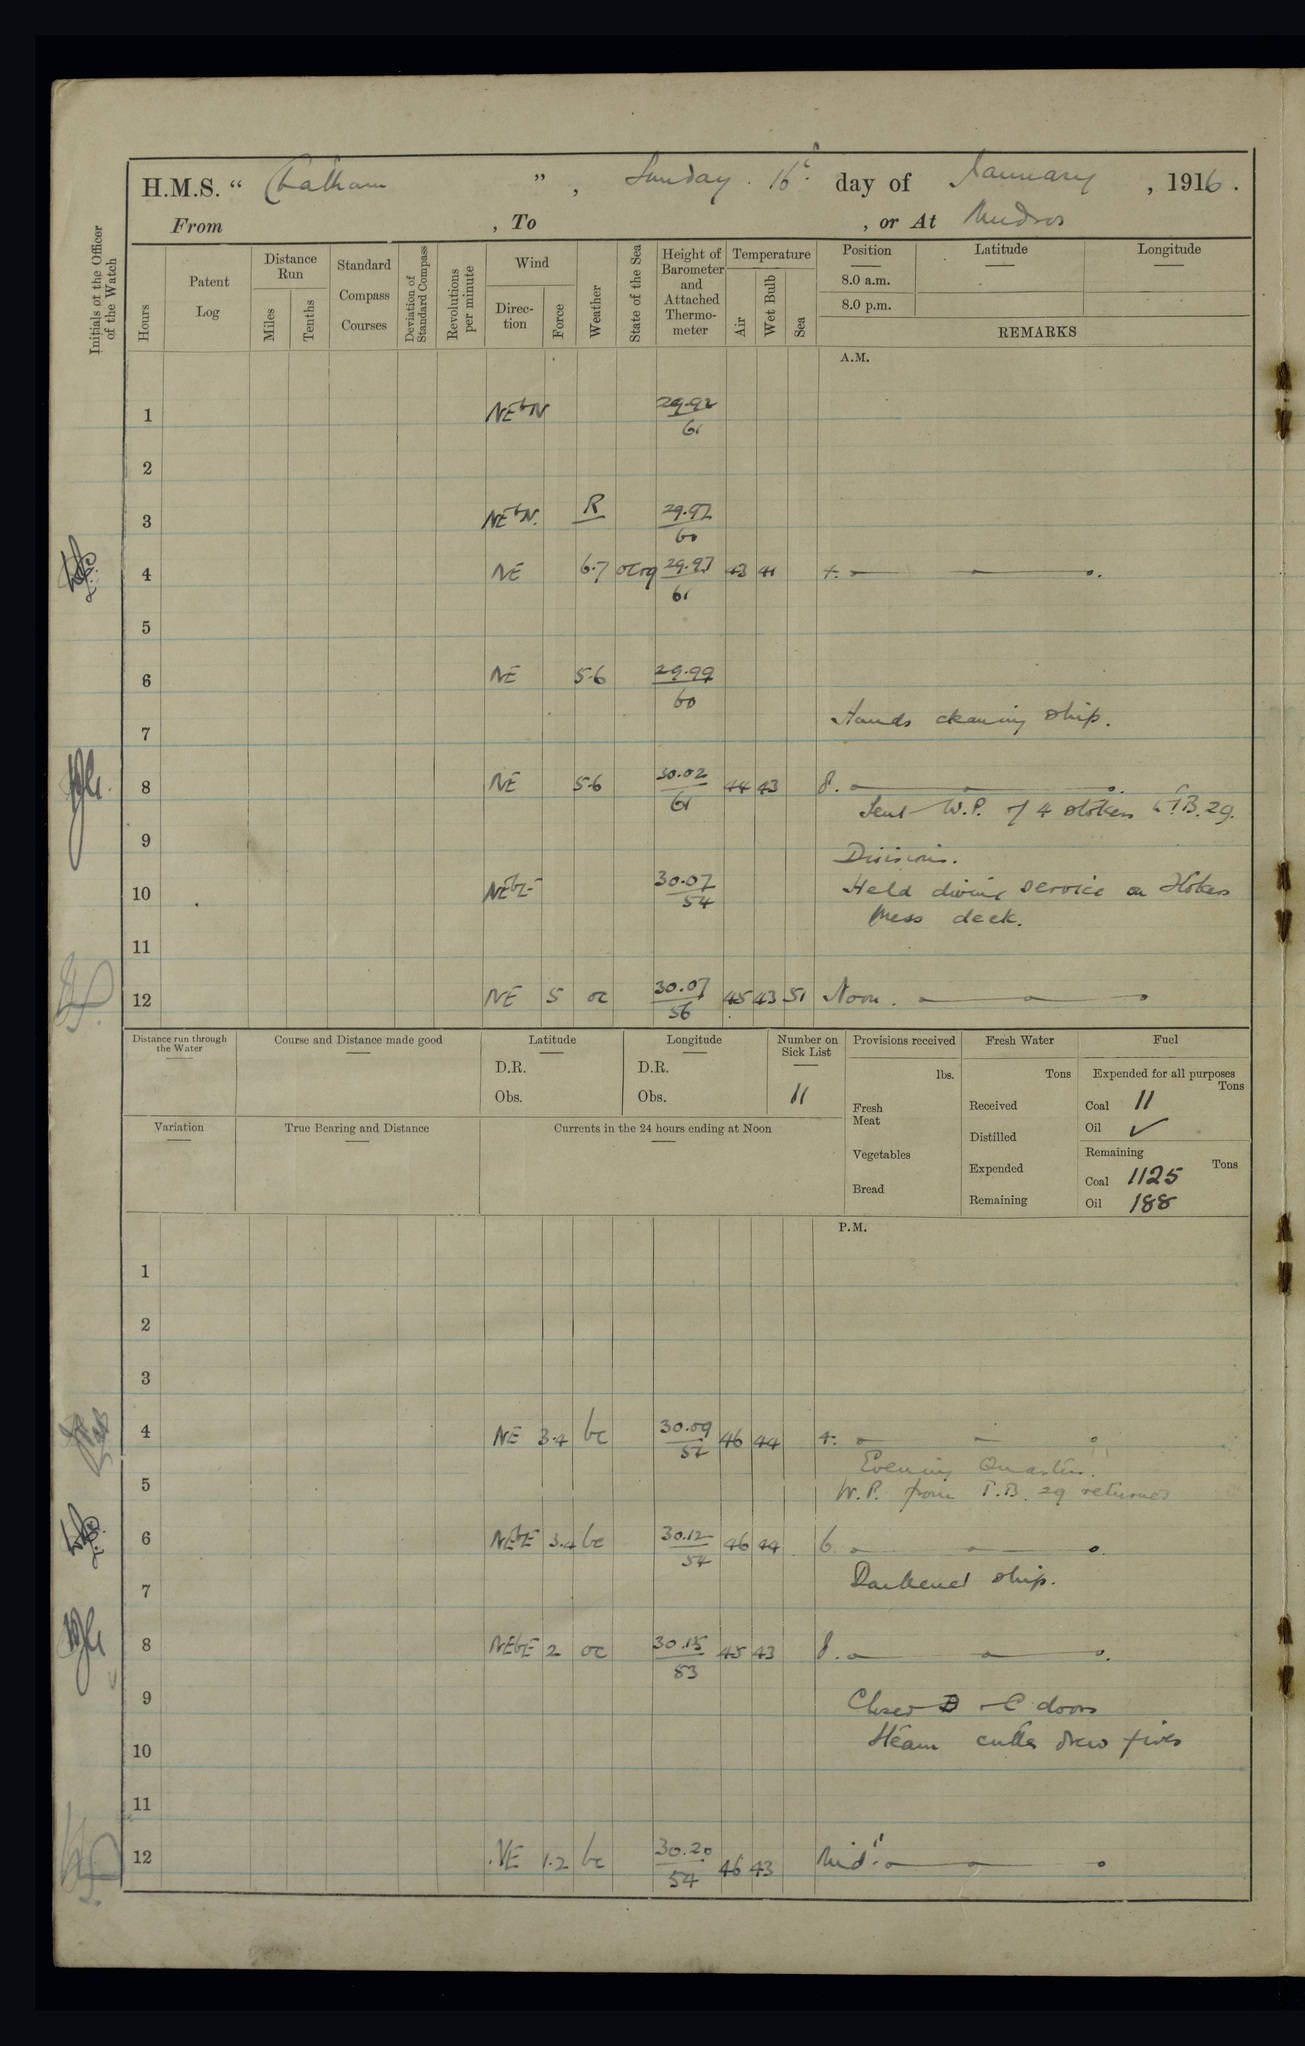 H.M.S. “ Chatham ” , Sunday. 16th day of January , 1916.
From , To , or At Mudros
Initials of the Officer of the Watch
Hours
Patent Log
Distance Run
Miles
Tenths
Standard Compass Courses
Deviation of Standard Compass
Revolutions per minute
Wind
Direction
Force
Weather
State of the Sea
Height of Barometer and Attached Thermometer
Temperature
Air
Wet Bulb
Sea
Position Latitude Longitude
8.0 a.m.
8.0 p.m.
REMARKS
A.M.
1 NEbN 29.92 61
2
3 NEbN. R 29.97 60
4 NE 6.7 ocrq 29.97 61 43 41 4.
5
6 NE 5.6 29.99 60
Hands cleaning ship.
7
8 NE 5.6 30.02 61 44 43 8.
Sent W.P. of 4 stokers to T.B. 29.
9
Divisions.
10 NEbE 30.07 54 Held divine service on Stokers
mess deck.
11
12 NE 5 oc 30.07 56 45 43 51 Noon.
Distance run through the Water
Course and Distance made good
Latitude
D.R.
Obs.
Longitude
D.R.
Obs.
Number on Sick List
11
Provisions received
lbs.
Fresh Meat
Vegetables
Bread
Fresh Water
Tons
Received
Distilled
Expended
Remaining
Fuel
Expended for all purposes
Tons
Coal 11
Oil ✓
Remaining
Tons
Coal 1125
Oil 188
Variation
True Bearing and Distance
Currents in the 24 hours ending at Noon
P.M.
1
2
3
4 NE 3.4 bc 30.09 46 44 4.
Evening Quarters.
5 W.P. from T.B. 29 returned
6 NEbE 3.4 bc 30.12 54 46 44 6
Darkened ship.
7
8 NEbE 2 oc 30.15 53 45 43 8.
9 Closed B & C doors
10 Steam cutter drew fires
11
12 NE 1.2 bc 30.20 54 46 43 Midt.